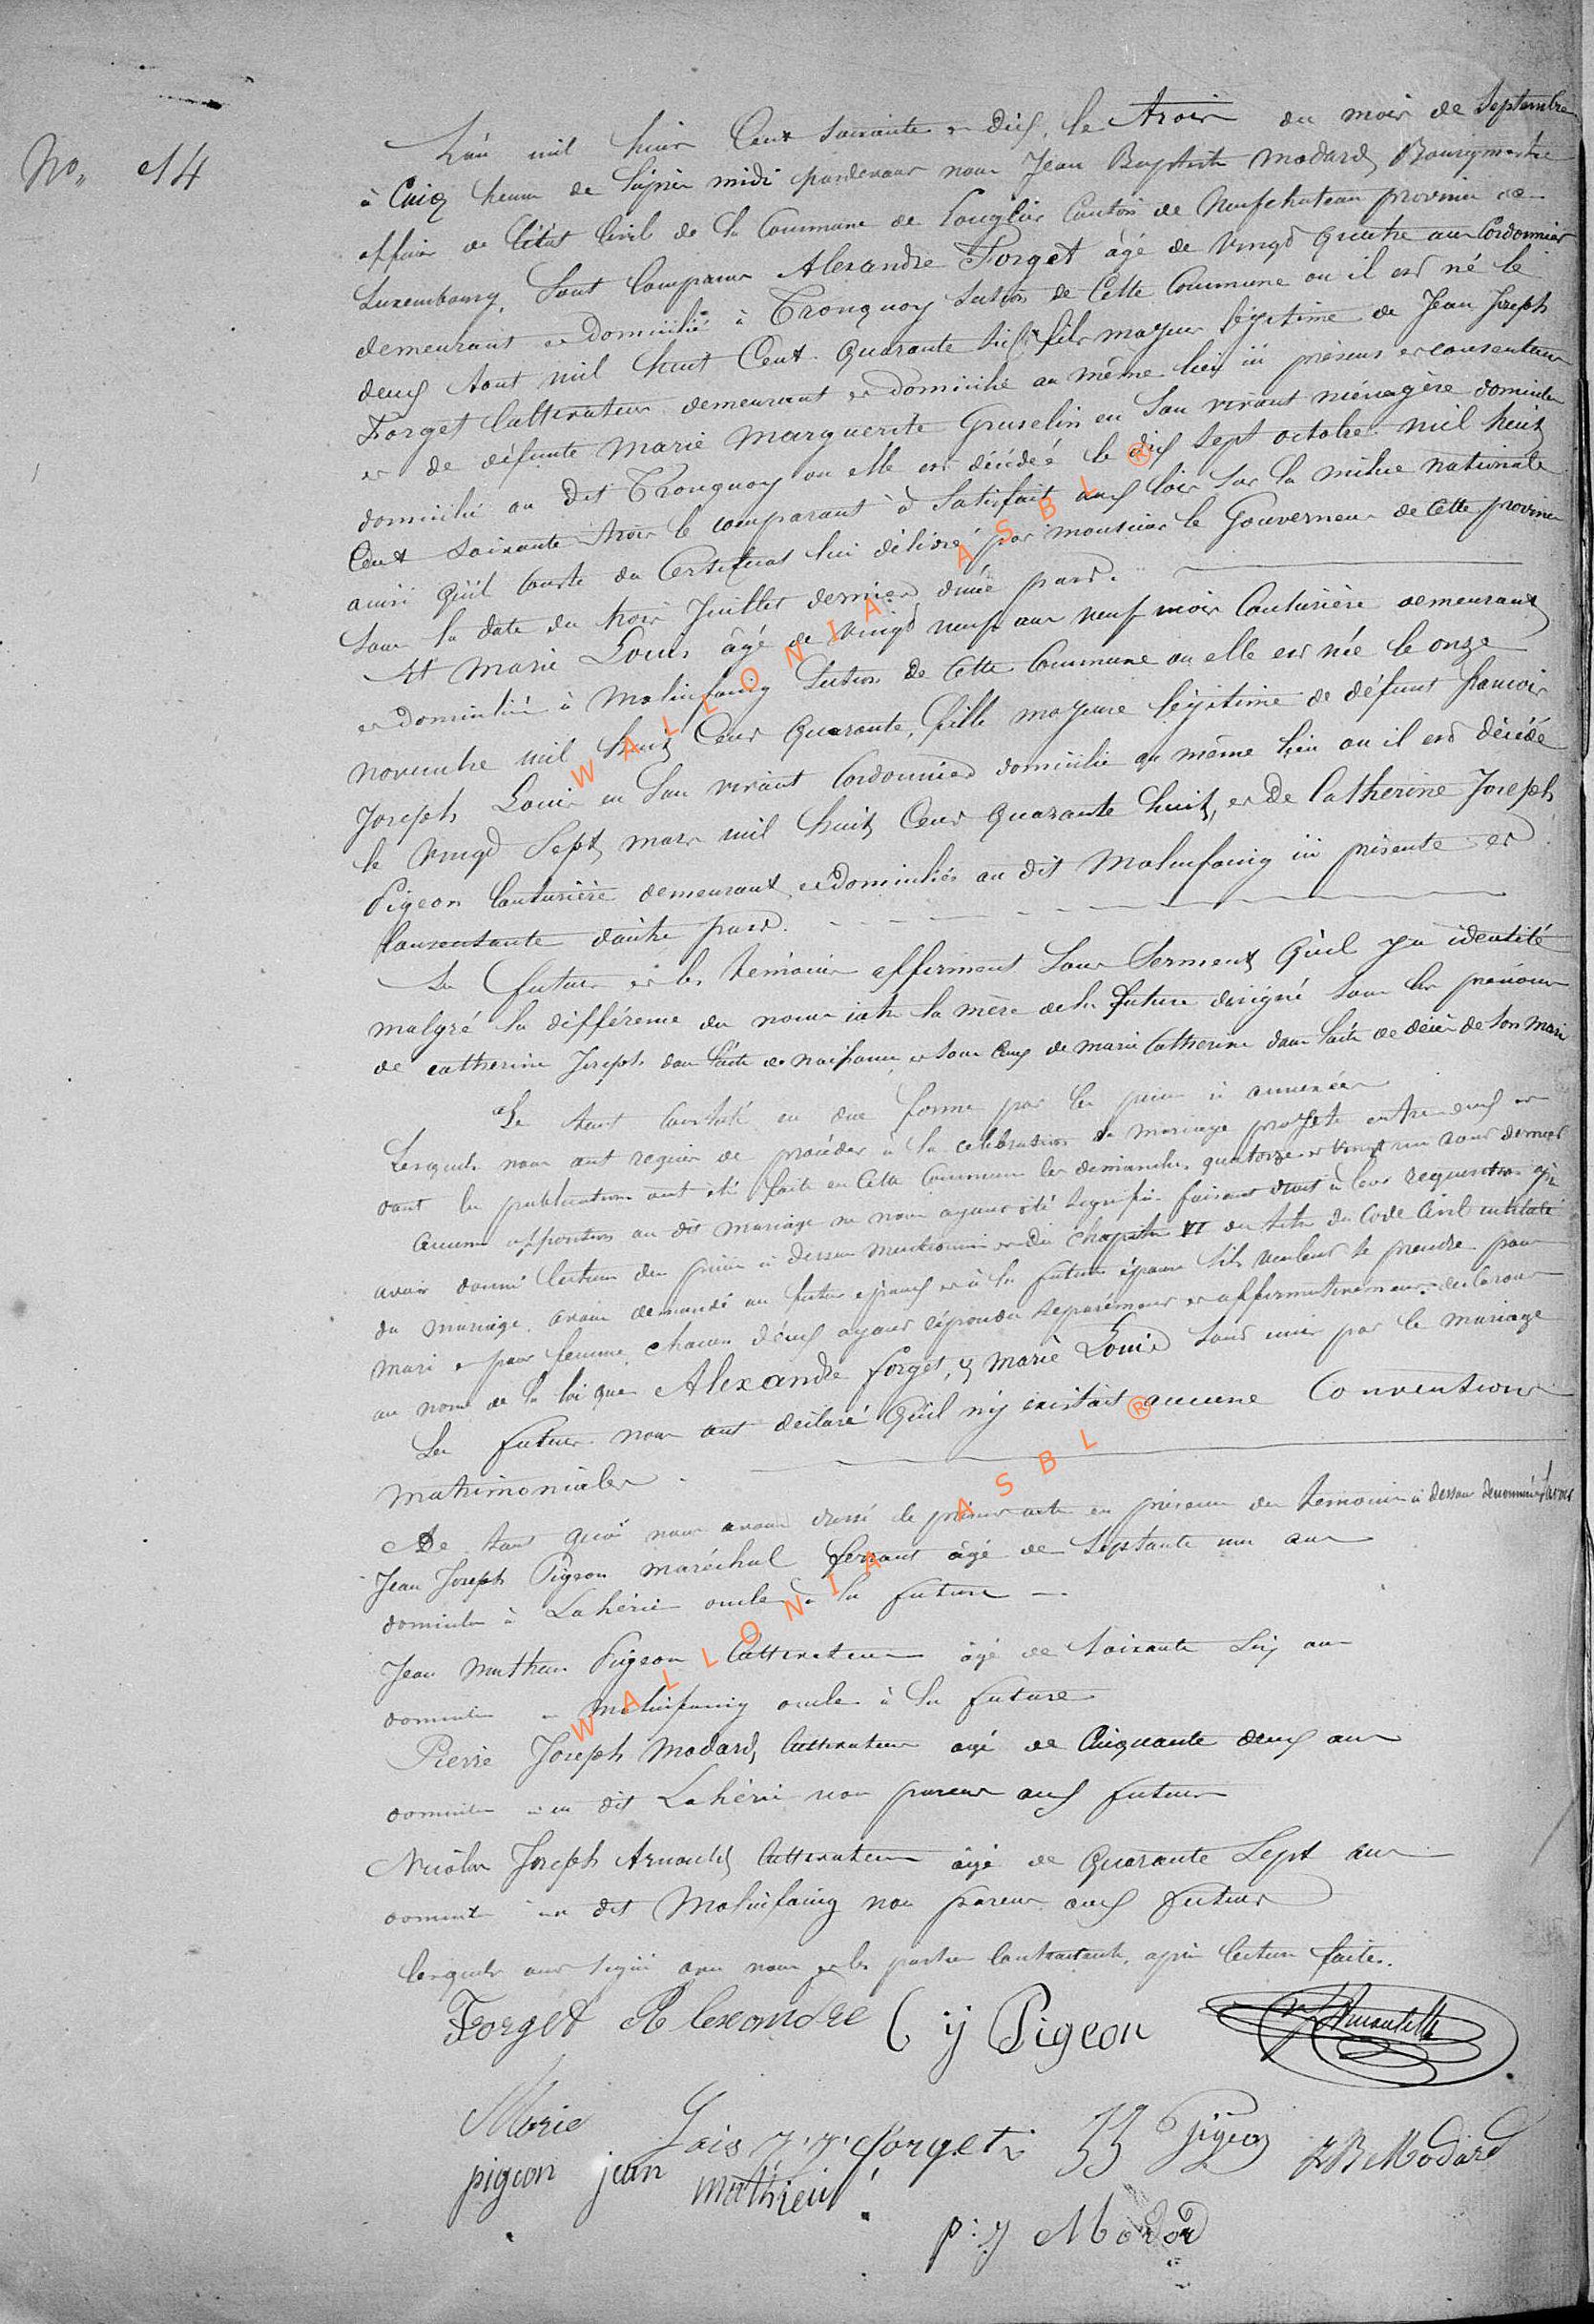 No. 14
L'an mil huit Cent soixante et dix, le trois du mois de Septembre
à Cinq heures de l'après midi pardevant nous Jean Baptiste Modard, Bourgmestre
officier de l'état Civil de la Commune de Longlier Canton de Neufchateau province de
Luxembourg, Sont Comparus Alexandre Forget âgé de vingt quatre ans Cordonnier
demeurant et domicilié à Tronquoy Section de Cette Commune ou il est né le
deux Aout mil huit Cent Quarante Six, fils majeur légitime de Jean Joseph
Forget Cultivateur demeurant et domicilié au même lieu ici présent et consentant
et de défunte Marie Marguerite Gruselin en Son vivant ménagère domiciliée
domicilié au dit Tronquoy ou elle est décédée le dix Sept octobre mil huit
Cent Soixante trois le comparant à Satisfait aux lois Sur la milice nationale
ainsi qu'il Conste du Certificat lui délivré par monsieur le Gouverneur de Cette province
Sous la date du trois Juillet dernier, d'une part.
Et Marie Louis âgé de vingt neuf ans neuf mois Couturière demeurant
et domiciliée à Molinfaing Section de Cette Commune ou elle est née le onze
novembre mil huit Cent Quarante, fille majeure légitime de défunt francois
Joseph Louis en Son vivant Cordonnier domicilié au même lieu ou il est décédé
le vingt Sept mars mil huit Cent Quarante huit, et de Catherine Joseph
Pigeon Couturière demeurant et domiciliée au dit Molinfaing ici présente et
Consentante d'autre part.
Les futurs et les témoins affirment Sous Serment Qu'il y a identité
malgré la différence des noms entre la mère de la future désigné Sous les prénoms
de catherine Joseph dans l'acte de naissance et Sous Ceux de marie Catherine dans l'acte de décès de Son mari
Le tout Constaté en due forme par les pièces ci annexées
Lesquels nous ont requis de procéder à la célébration du mariage projeté entre eux et
dont les publications ont été faite en Cette Commune les dimanches quatorze et vingt un aout dernier
Aucune opposition au dit mariage ne nous ayant été Signifié faisant droit à leur requisition après
avoir donné lecture des pièces ci dessus mentionnées et du Chapitre VI du titre du Code Civil intitulé
du mariage, avons demandé au futur époux et à la future épouse S'ils veulent Se prendre pour
mari et pour femme, chacun d'eux ayant répondu Séparément et affirmativement, déclarons
au nom de la loi que Alexandre Forget, & Marie Louis Sont unis par le mariage
Les futurs nous ont déclaré Qu'il n'y existait aucune Conventions
matrimoniales.
De tout quoi nous avons dressé le présent acte en présence des témoins ci dessous dénommés Savoir
Jean Joseph Pigeon maréchal ferrant âgé de Septante un ans
domicilié à Lahérie oncle à la future
Jean Mathieu Pigeon Cultivateur âgé de Soixante Six ans
domicilié à Molinfaing oncle à la future
Pierre Joseph Modard, Cultivateur âgé de Cinquante deux ans
domicilié au dit Lahérie non parent aux futurs
Nicolas Joseph Arnould, Cultivateur âgé de Quarante Sept ans
domicilié au dit Molinfaing non parent aux futurs
lesquels ont signé avec nous et les parties Contractantes, après lecture faite.
Forget Alexandre C j Pigeon
Marie Lois J. J. forget JJ Pigeon J B Modard
pigeon jean mathieu
p: J Modard
WALLONIA ASBL ®
WALLONIA ASBL ®